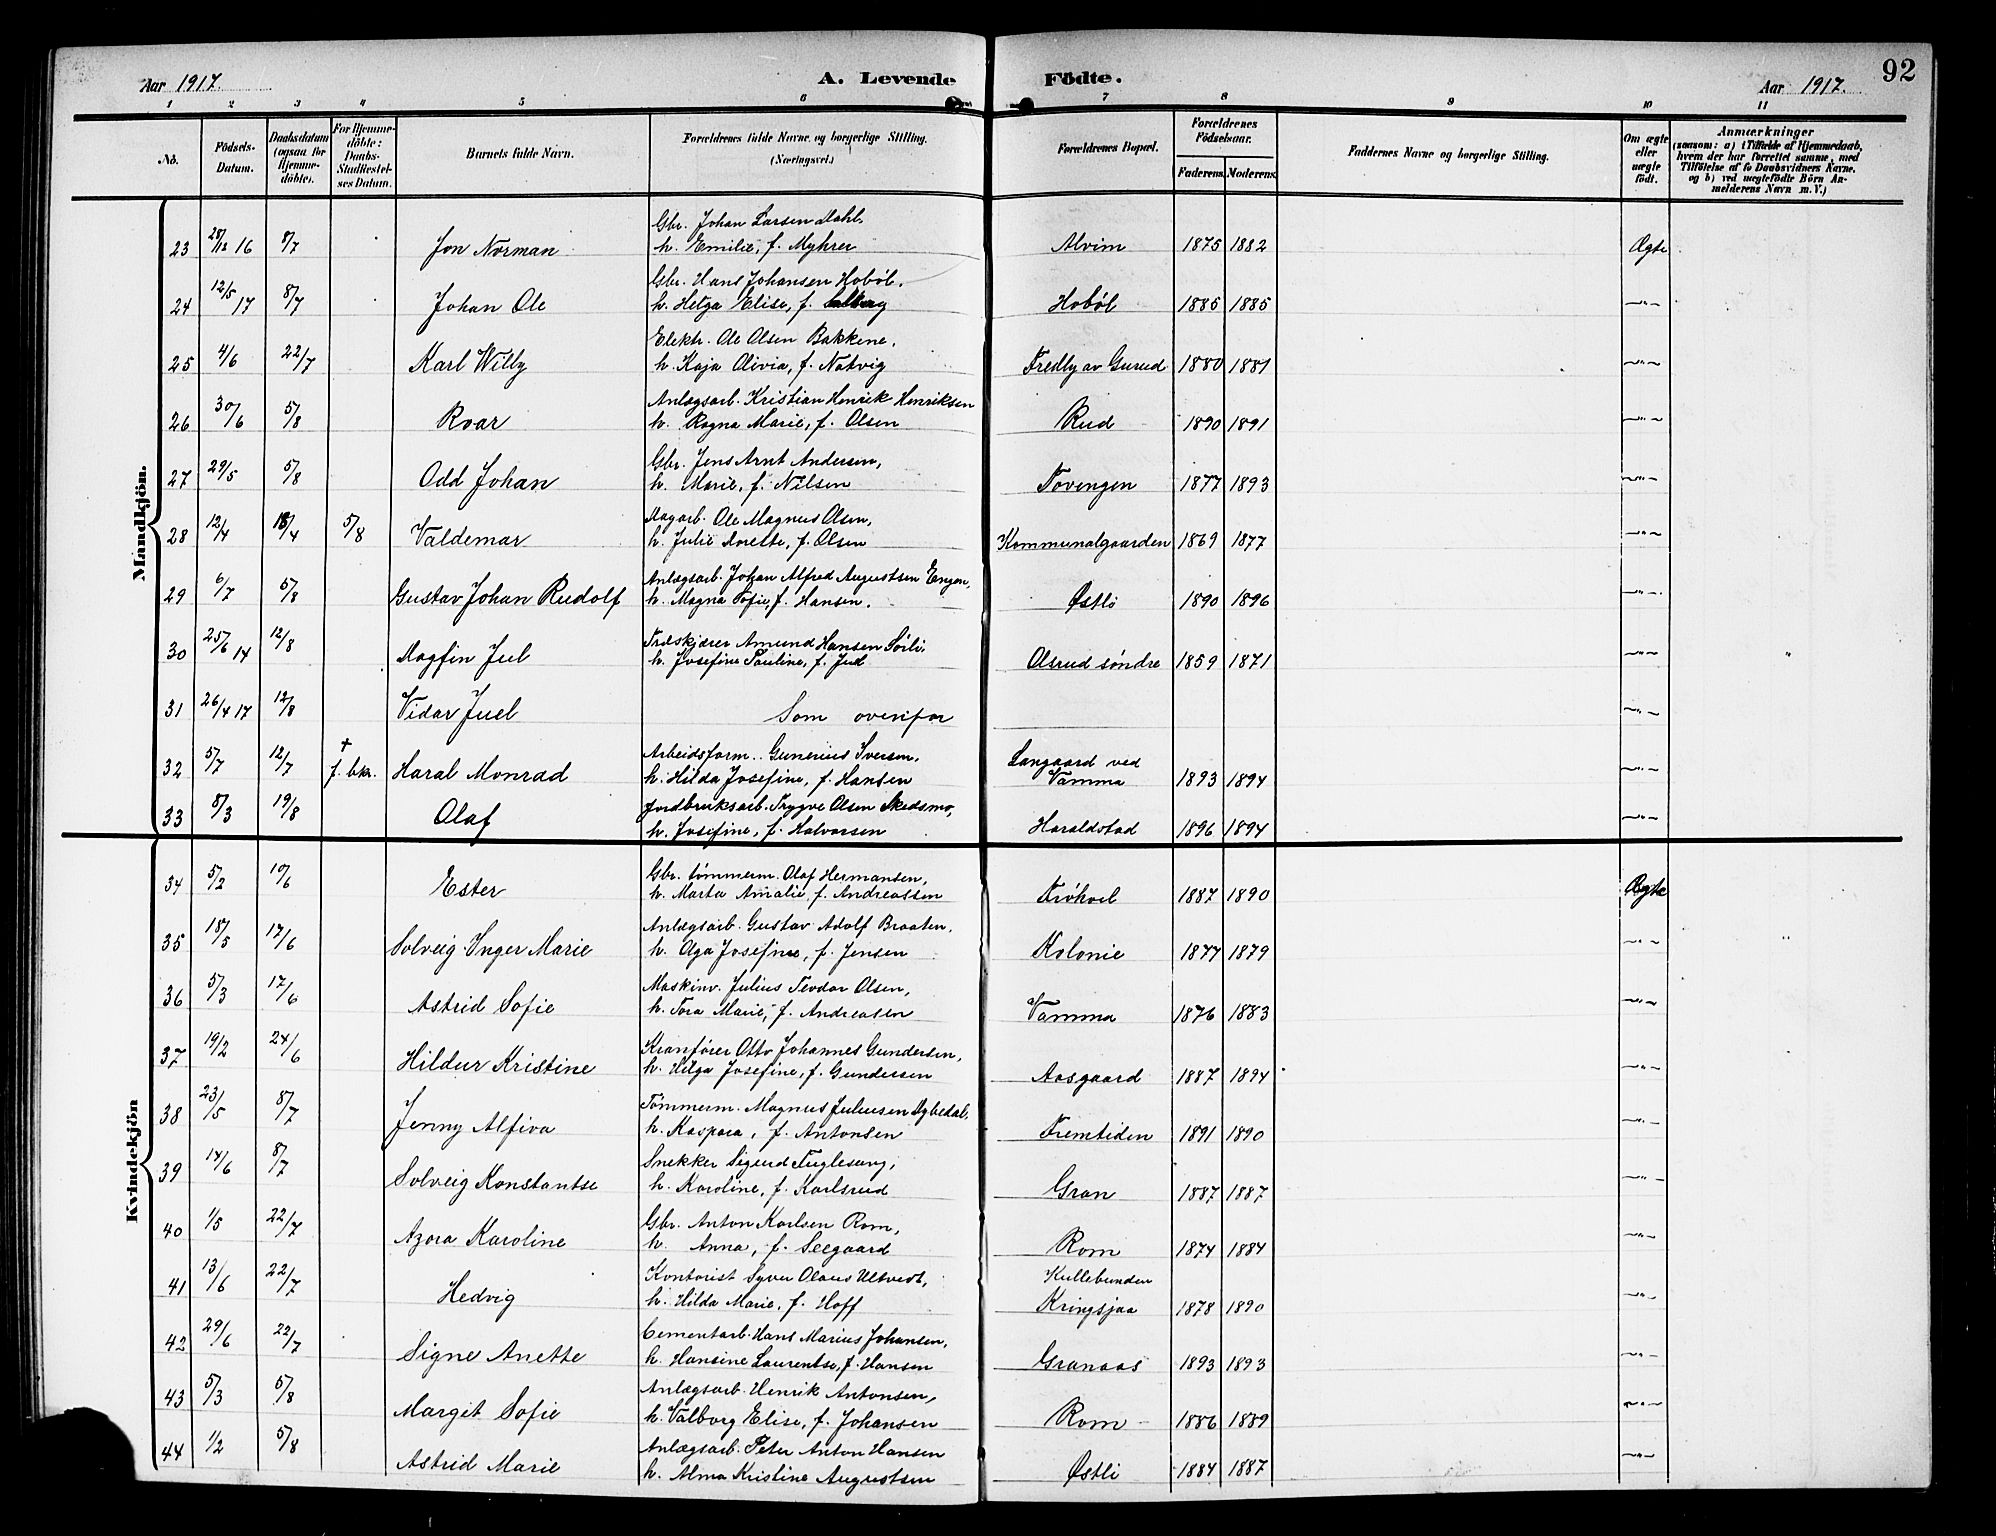 92
Aar 1917. A. Levende Födte. Aar 1917.
1 2 3 4 5 6 7 8 9 10 11
No. Födsels-Datum. Daabsdatum (ogsaa for Hjemme-döbte). For Hjemme-döbte: Daabs-Stadfæstel-ses Datum. Barnets fulde Navn. Forældrenes fulde Navne og borgerlige Stilling. (Næringsvei.) Forældrenes Bopæl. Forældrenes Födselsaar. Faderens. Moderens. Faddernes Navne og borgerlige Stilling. Om ægte eller uægte födt. Anmærkninger (saasom: a) i Tilfælde af Hjemmedaab, hvem der har forrettet samme, med Tilföielse af to Daabsvidners Navne. og b) ved uægtefödte Börn An-melderens Navn m. V.)
Mandkjön.
Gbr. Johan Larsen Dahl,
23 28/12 16 8/7 Jon Norman h. Emilie, f. Myhrer Alvim 1875 1882 Ægte
Gbr. Hans Johansen Hobøl,
24 12/5 17 8/7 Johan Ole h. Helga Elise, f. Hobøl 1885 1885 -"-
Elektr. Ole Olsen Bakkene,
25 4/6 22/7 Karl Willy h. Kaja Olivia, f. Natvig Fredly av Gurud 1880 1881 -"-
Anlægsarb. Kristian Henrik Henriksen
26 30/6 5/8 Roar h. Ragna Marie, f. Olsen Rud 1890 1891 -"-
Gbr. Jens Arnt Andersen,
27 29/5 5/8 Odd Johan h. Marie, f. Nilsen Tovengen 1877 1893 -"-
Dagarb. Ole Magnus Olsen,
28 12/4 18/4 5/8 Valdemar h. Julie Dorette, f. Olsen Kommunalgaarden 1869 1877 -"-
Anlægsarb. Johan Alfred Augustsen Engen,
29 6/7 5/8 Gustav Johan Rudolf h. Magna Sofie, f. Hansen. Østli 1890 1896 -"-
Træskjærer Amund Hansen Sørli,
30 25/6 14 12/8 Dagfin Juel h. Josefine Pauline, f. Jud Olsrud søndre 1859 1871 -"- "
31 26/4 17 12/8 Vidar Juel Som ovenfor -"-
Arbeidsform. Gunerius Iversen, Langaard ved
32 5/7 12/7 † f. bkr. Haral Monrad h. Hilda Josefine, f. Hansen Vamma 1893 1894 -"-
Jordbruksarb. Trygve Olsen Skedsmo,
33 8/3 19/8 Olaf h. Josefine, f. Halvorsen Haraldstad 1896 1894 -"-
Kvindekjön
Gbr. tømmerm. Olaf Hermansen,
34 5/2 10/6 Ester h. Marta Amalie, f. Andreassen Frøhoel 1887 1890 Ægte
Anlægsarb. Gustav Adolf Braaten,
35 18/5 17/6 Solveig Inger Marie h. Olga Josefine, f. Jensen Kolonie 1877 1879 -"- "
Maskinv. Julius Teodor Olsen,
36 5/3 17/6 Astrid Sofie h. Tora Marie, f. Andreasen Vamma 1876 1883 -"-
Kranfører Otto Johannes Gundersen,
37 19/2 24/6 Hildur Kristine h. Helga Josefine, f. Gundersen Aasgaard 1887 1894 -"-
Tømmerm. Magnus Juliusen Dybedal,
38 23/5 8/7 Jenny Alfiva h. Kaspara, f. Antonsen Fremtiden 1891 1890 -"-
Snekker Sigurd Fuglesang,
39 14/6 8/7 Solveig Konstantse h. Karoline, f. Karlsrud Gran 1887 1887 -"-
Gbr. Anton Karlsen Rom,
40 1/5 22/7 Azora Karoline h. Anna, f. Seegaard Rom 1874 1884 -"-
Kontorist Syver Olaus Ultvedt, Kullebunden
41 13/6 22/7 Hedvig h. Hilda Marie, f. Hoff Kringsjaa 1878 1890 -"-
Cementarb. Hans Marius Johansen,
42 29/6 22/7 Signe Anette h. Hansine Laurentse, f. Hansen Granaas 1893 1893 -"-
Anlægsarb. Henrik Antonsen,
43 5/3 5/8 Margit Sofie h. Valborg Elise, f. Johansen Rom 1886 1889 -"-
Anlægsarb. Peter Anton Hansen
44 1/2 5/8 Astrid Marie h. Alma Kristine Augustsen Østli 1884 1887 -"-